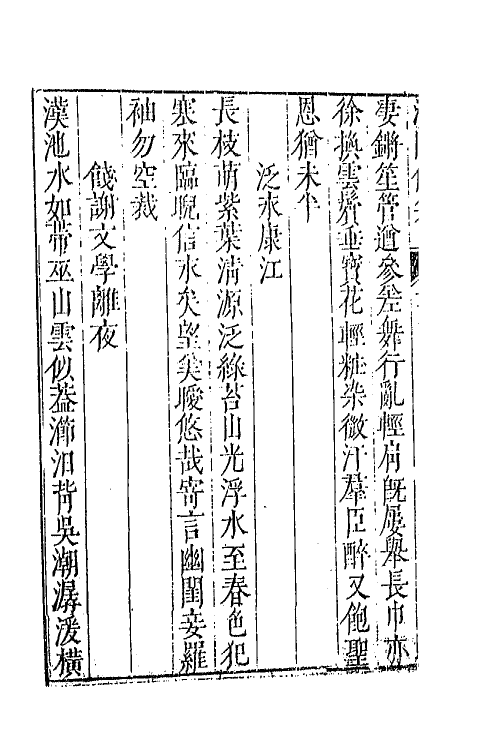 妻鏘笙管遒參差舞行亂輕肩既屢舉長巾亦
徐換雲鬢垂寶花輕粧染微汗羣臣醉又飽聖
恩猶未半
泛永康江
長枝萌紫葉清源泛綠苔山光浮水至春色犯
寒來臨睨信永矣望美曖悠哉寄言幽閨妾羅
袖勿空裁
餞謝文學離夜
漢池水如帶巫山雲似葢瀄汩背吳潮潺湲橫